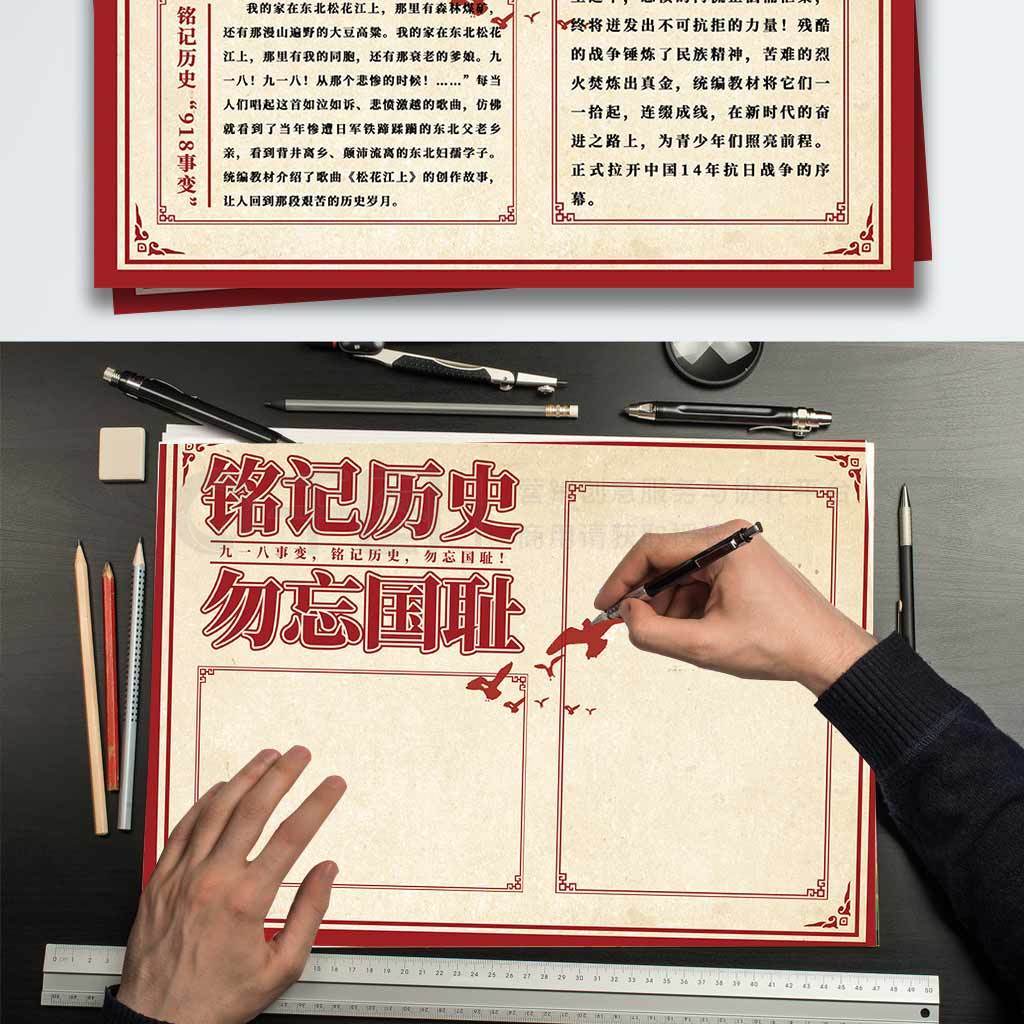 铭记历史“918事变”
我的家在东北松花江上，那里有森林煤矿，
还有那漫山遍野的大豆高粱。我的家在东北松花
江上，那里有我的同胞，还有那衰老的爹娘。九
一八！九一八！从那个悲惨的时候！……”每当
人们唱起这首如泣如诉、悲愤激越的歌曲，仿佛
就看到了当年惨遭日军铁蹄蹂躏的东北父老乡
亲，看到背井离乡、颠沛流离的东北妇孺学子。
统编教材介绍了歌曲《松花江上》的创作故事，
让人回到那段艰苦的历史岁月。
终将迸发出不可抗拒的力量！残酷
的战争锤炼了民族精神，苦难的烈
火焚炼出真金，统编教材将它们一
一拾起，连缀成线，在新时代的奋
进之路上，为青少年们照亮前程。
正式拉开中国14年抗日战争的序
幕。
铭记历史
九一八事变，铭记历史，勿忘国耻！
勿忘国耻
0 1 2 3
15 16 17 18 19 20 21 22 23 24 25 26 27 28 29 30 31 32 33 34 35 36 37 38 39 40 41 42 43 44 45 46 47 48 49 50